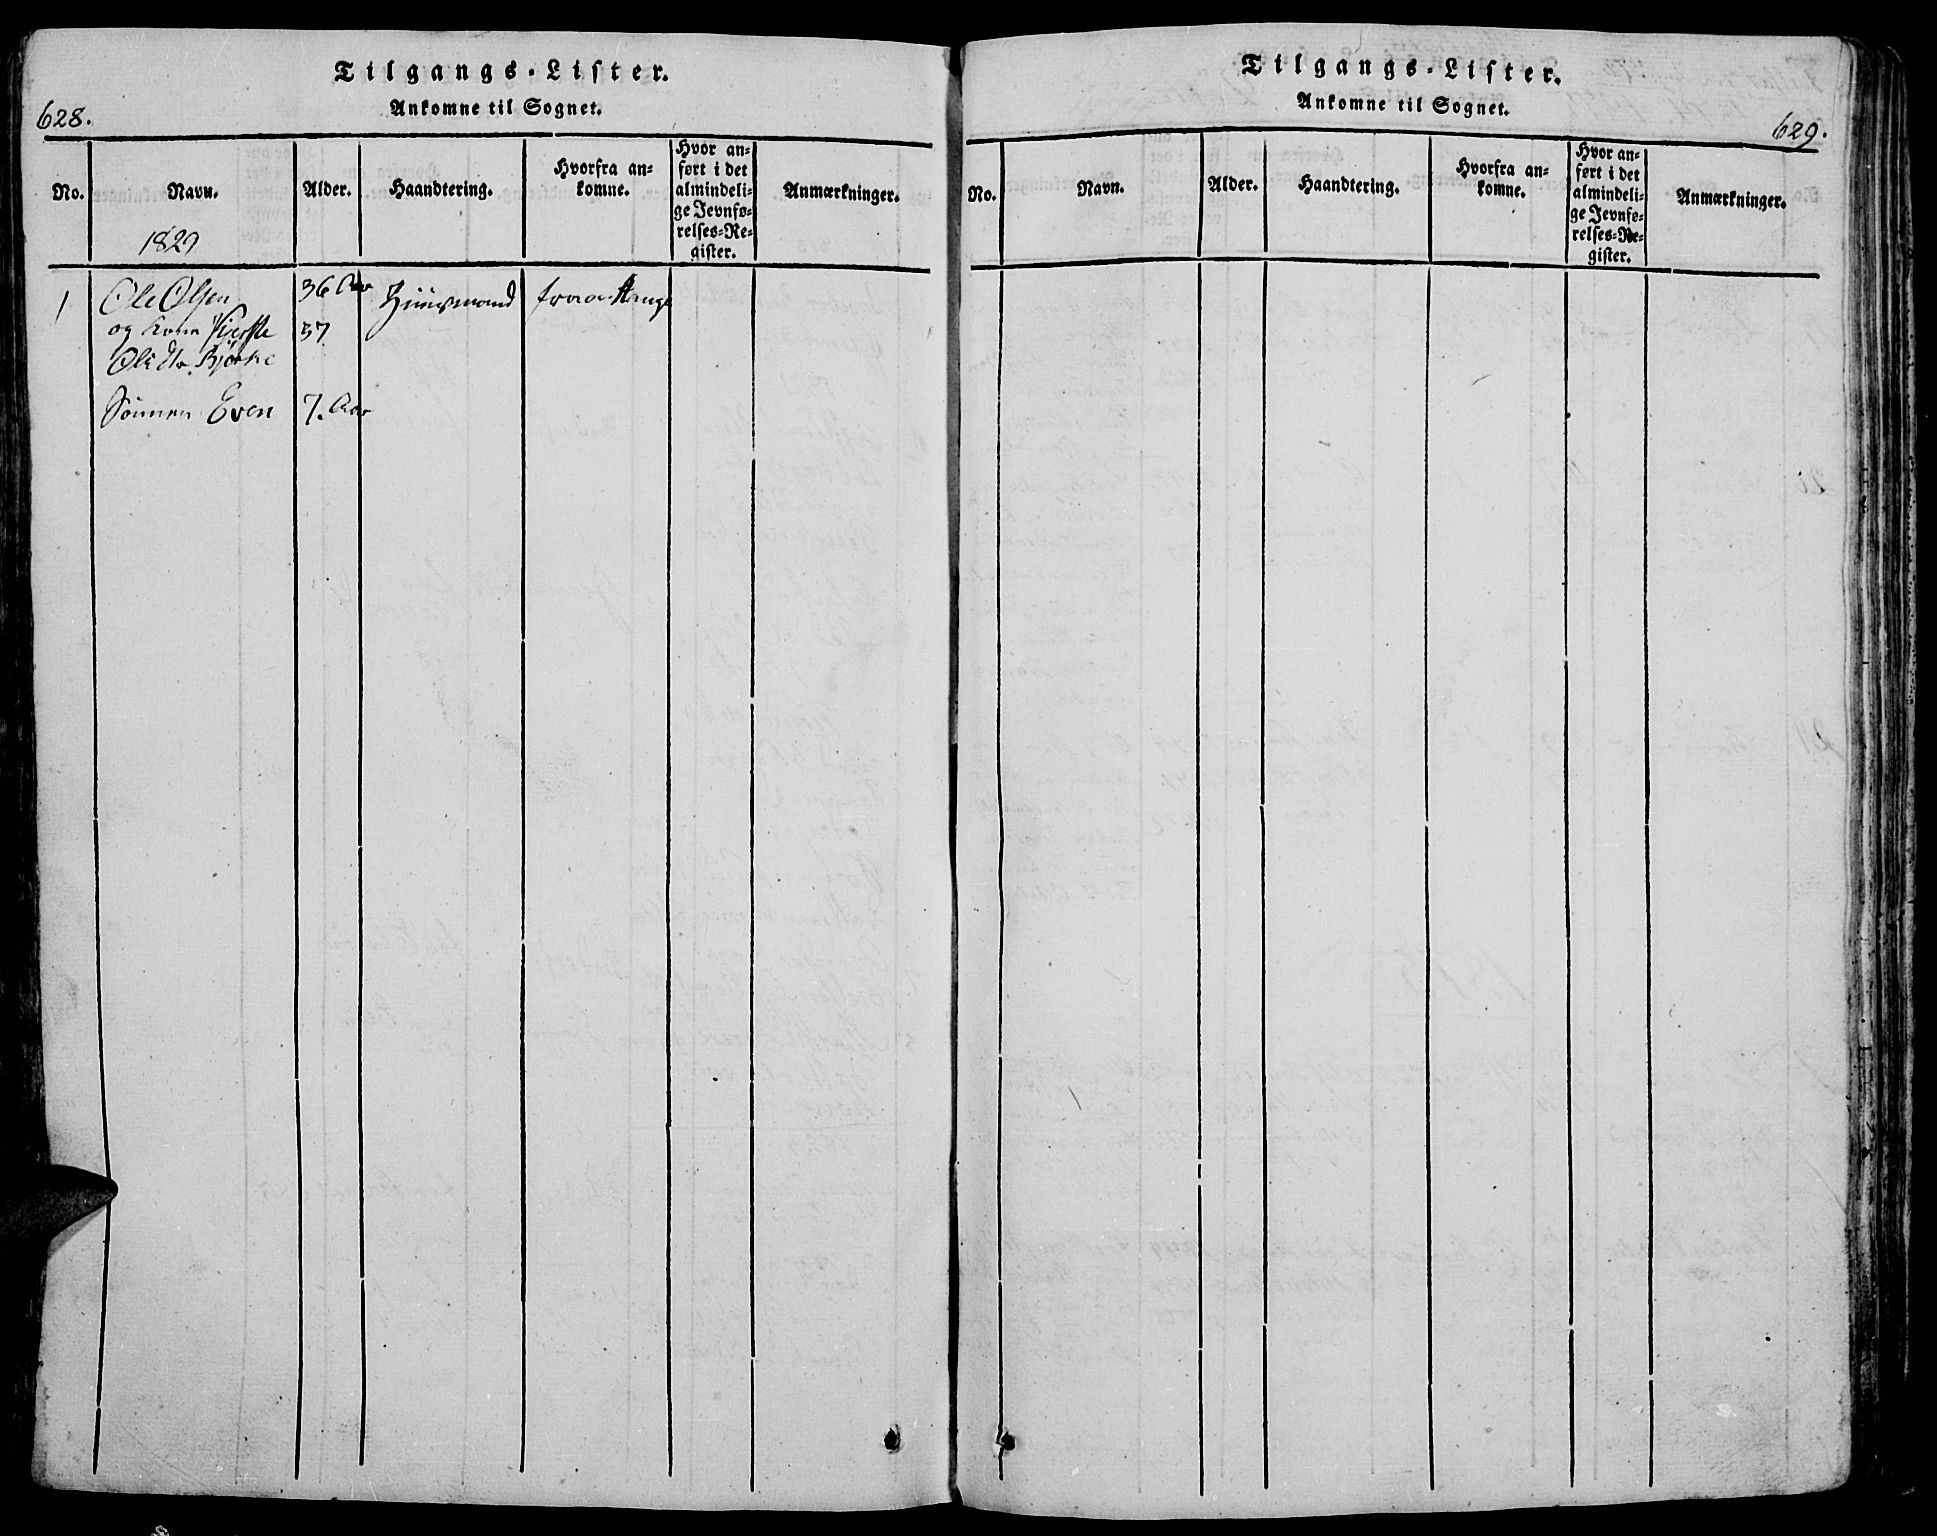 Tilgangs-Lister.
Ankomne til Sognet.
628.
No.
Navn.
1829
Alder.
Haandtering.
Hvorfra an=
komne.
Hvor an=
ført i det
almindeli=
ge Jevnfø=
relses=Re=
gister.
Anmærkninger.
1
Ole Olsen
36 Aar
Huusmand
fraa Stange
og Kone
37
Ols dtr.
Sønnen Even
7. Aar
Tilgangs-Lister.
Ankomne til Sognet.
629.
No.
Navn.
Alder.
Haandtering.
Hvorfra an=
komne.
Hvor an=
ført i det
almindeli=
ge Jevnfø=
relses=Re=
gister.
Anmærkninger.